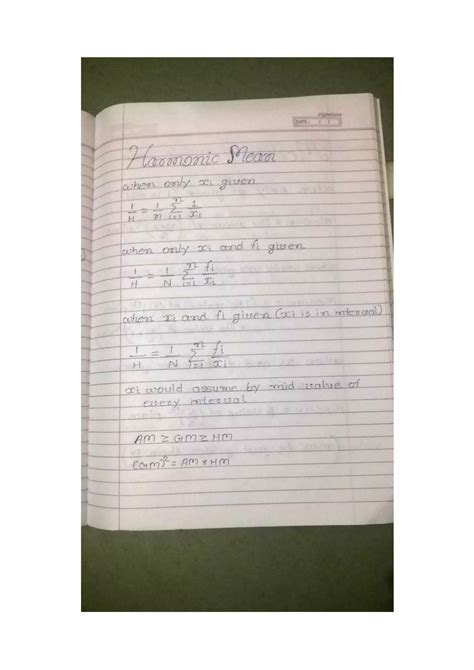 Signature
DATE : / /
Harmonic Mean
when only xi given
1/H = 1/n n∑i=1 1/xi
when only xi and fi given
1/H = 1/N n∑i=1 fi/xi
when xi and fi given (xi is in interval)
1/H = 1/N n∑i=1 fi/xi
xi would assume by mid value of
every interval
AM ≥ GM ≥ HM
(GM)² = AM × HM